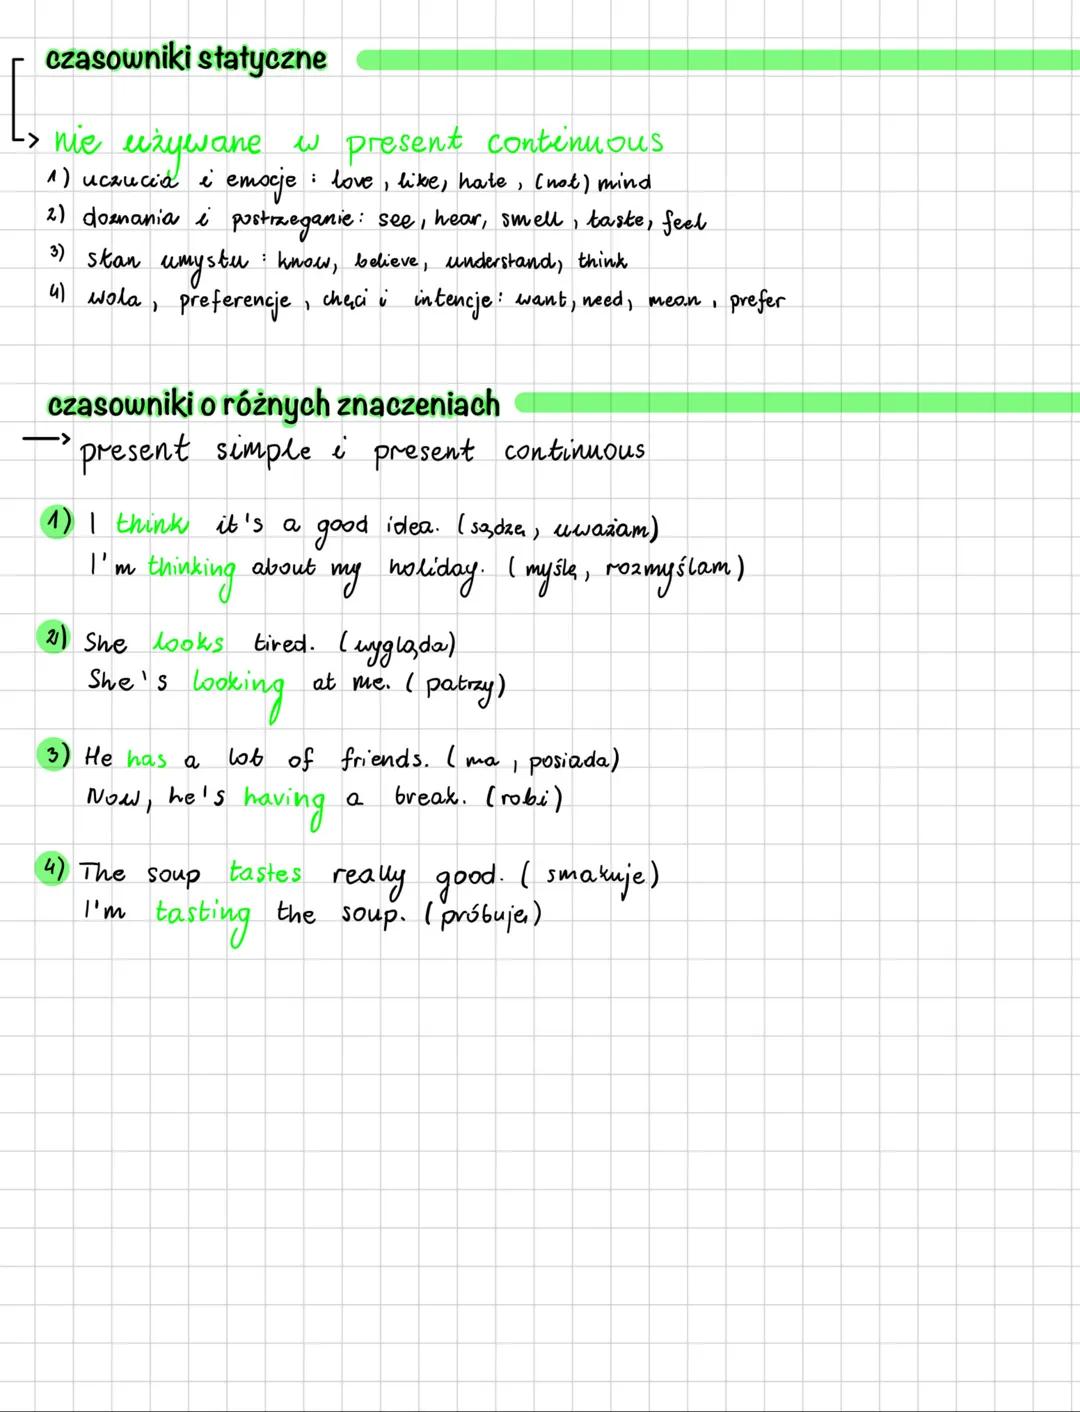 czasowniki statyczne
nie używane w present continuous
1) uczucia i emocje : love, like, hate, (not) mind
2) doznania i postrzeganie: see, hear, smell, taste, feel
3) stan umysłu : know, believe, understand, think
4) wola, preferencje, chęci i intencje: want, need, mean, prefer
czasowniki o różnych znaczeniach
present simple i present continuous
1) I think it's a good idea. (sądzę, uważam)
I'm thinking about my holiday. (myślę, rozmyślam)
2) She looks tired. (wygląda)
She's looking at me. (patrzy)
3) He has a lot of friends. (ma, posiada)
Now, he's having a break. (robi)
4) The soup tastes really good. (smakuje)
I'm tasting the soup. (próbuję)